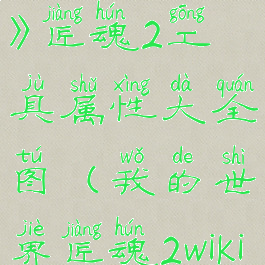 jiàng hún gōng
》匠魂2工
jù shǔ xìng dà quán
具属性大全
tú wǒ de shì
图(我的世
jiè jiàng hún
界匠魂2wiki